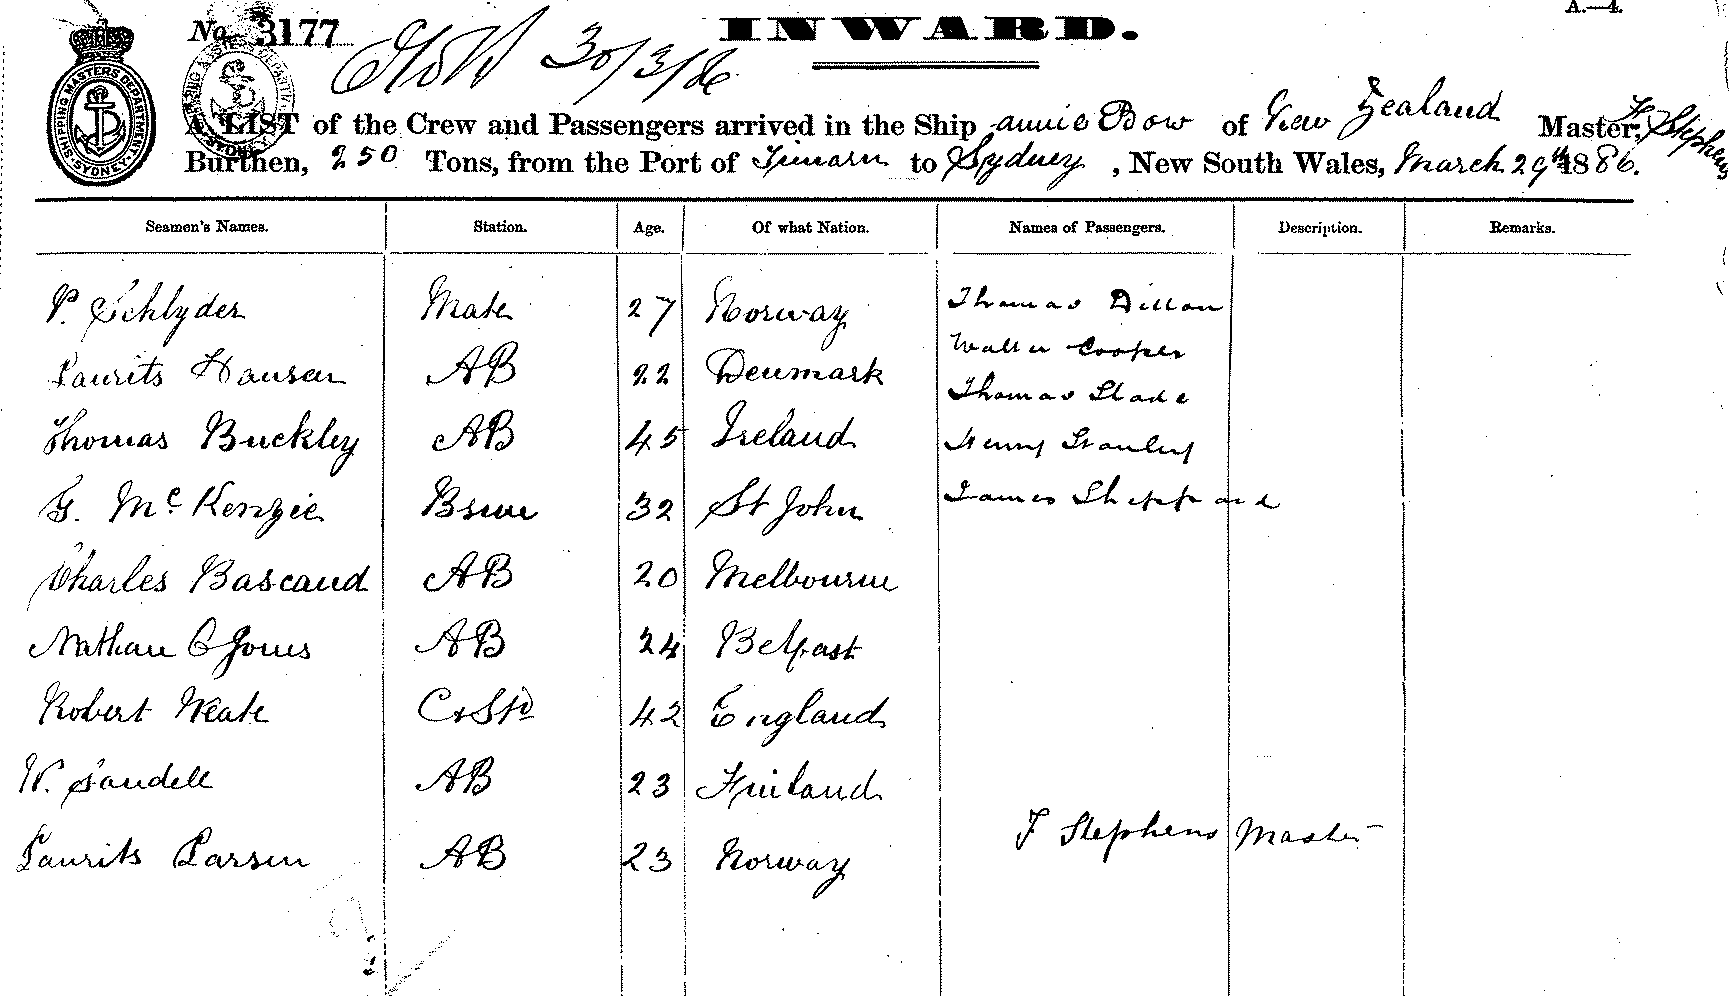 A.—4.
No. 3177 INWARD.
30/3/86
A LIST of the Crew and Passengers arrived in the Ship Annie Bow of New Zealand Master, F Stephens
Burthen, 250 Tons, from the Port of Timaru to Sydney, New South Wales, March 29th 1886.
SHIPPING MASTERS DEPARTMENT SYDNEY
Seamen's Names. Station. Age. Of what Nation. Names of Passengers. Description. Remarks.
P. Schlyder Mate 27 Norway Thomas Dillon
Laurits Hansen AB 22 Denmark Walter Cooper
Thomas Slade
Thomas Buckley AB 45 Ireland Henry Stanley
G. McKenzie 32 St John James Sheppard
Charles Bascand AB 20 Melbourne
Nathan C Jones AB 24 Belfast
Robert Neate C & Std 42 England
W. Sandell AB 23 Finland
F Stephens Master
Laurits Larsen AB 23 Norway